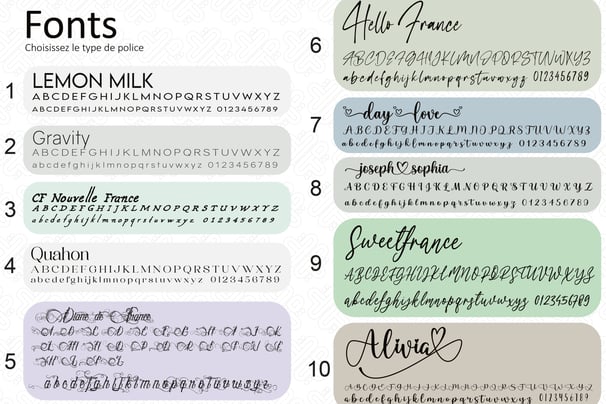 Fonts
Choisissez le type de police
1
LEMON MILK
ABCDEFGHIJKLMNOPQRSTUVWXYZ
ABCDEFGHIJKLMNOPQRSTUVWXYZ 0123456789
2
Gravity
ABCDEFGHIJKLMNOPQRSTUVWXYZ
abcdefghijklmnopqrstuvwxyz 0123456789
3
CF Nouvelle France
ABCDEFGHIJKLMNOPQRSTUVWXYZ
abcdefghijklmnopqrstuvwxyz 0123456789
4
Quahon
ABCDEFGHIJKLMNOPQRSTUVWXYZ
abcdefghijklmnopqrstuvwxyz 0123456789
5
Diane de France
abcdefghijklmnopqrstuvwxyz
6
Hello France
ABCDEFGHIJKLMNOPQRSTUVWXYZ
abcdefghijklmnopqrstuvwxyz 0123456789
7
day love
ABCDEFGHIJKLMNOPQRSTUVWXYZ
abcdefghijklmnopqrstuvwxyz 0123456789
8
joseph sophia
ABCDEFGHIJKLMNOPQRSTUVWXYZ
abcdefghijklmnopqrstuvwxyz 0123456789
9
Sweetfrance
ABCDEFGHIJKLMNOPQRSTUVWXYZ
abcdefghijklmnopqrstuvwxyz 0123456789
10
Alivia
ABCDEFGHIJKLMNOPQRSTUVWXYZ
abcdefghijklmnopqrstuvwxyz 0123456789